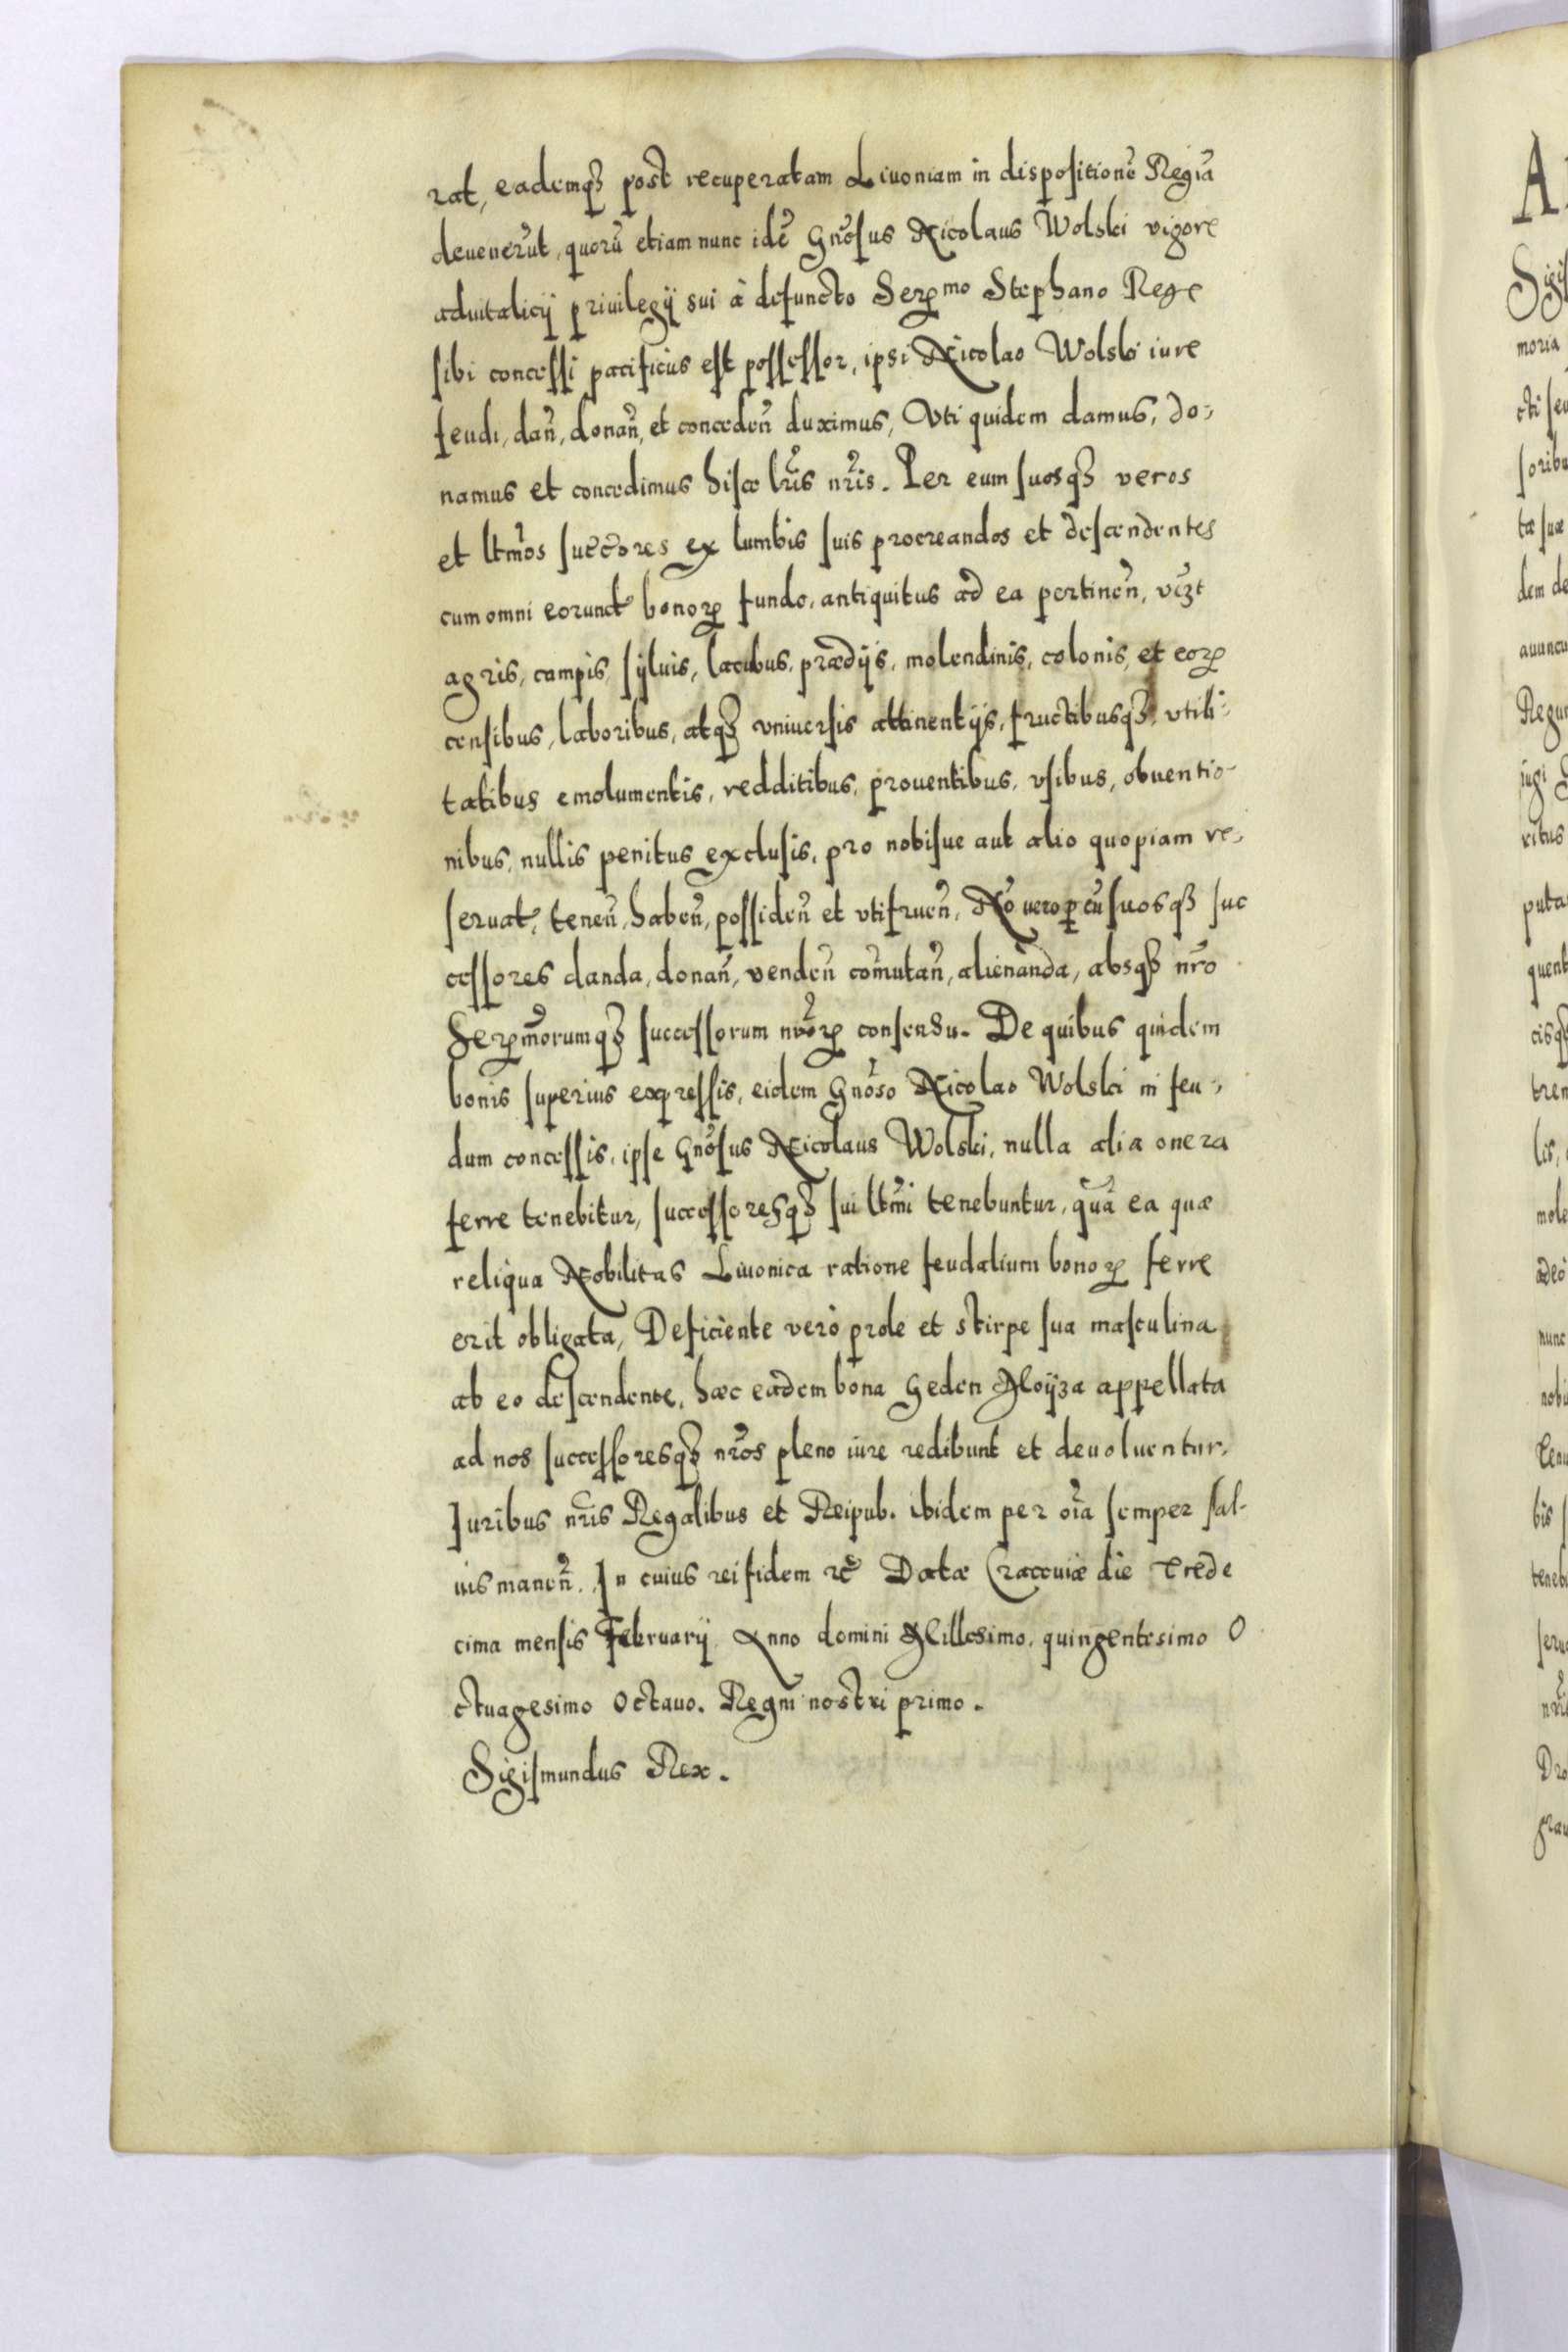 rat, eademqȝ post recuperatam Liuoniam in dispositionē Regiā
deuenerūt, quorū etiam nunc idē Gnōsus Nicolaus Wolski vigore
aduitalicij priuilegij sui à defuncto Serꝑmo Stephano Rege
sibi concessi pacificus est possessor, ipsi Nicolao Wolski iure
feudi, dañ, donañ, et concedeñ duximus, Vti quidem damus, do-
namus et concedimus hisce lr̃is nr̃is. Per eum suosqȝ veros
et ltm̃os succ̃ores ex lumbis suis procreandos et descendentes
cum omni eorund̃ bonoꝝ fundo, antiquitus ad ea pertineñ, vȝt
agris, campis, syluis, lacubus, prædijs, molendinis, colonis, et eoꝝ
censibus, laboribus, atqȝ vniuersis attinentijs, fructibusqȝ, vtili-
tatibus emolumentis, redditibus, prouentibus, vsibus, obuentio-
nibus, nullis penitus exclusis, pro nobisue aut alio quopiam re-
seruat̃, teneñ, habeñ, possideñ et vtifrueñ, Nō uero ꝑ eū suosqȝ suc
cessores danda, donañ, vendeñ com̃utañ, alienanda, absqȝ nr̃o
Serꝑm̃orumqȝ successorum nr̃oꝝ consensu. De quibus quidem
bonis superius expressis, eidem Gnōso Nicolao Wolski in feu-
dum concessis, ipse Gnōsus Nicolaus Wolski, nulla alia onera
ferre tenebitur, successoresqȝ sui ltm̃i tenebuntur, quā ea quæ
reliqua Nobilitas Liuonica ratione feudalium bonoꝝ ferre
erit obligata, Deficiente verò prole et stirpe sua masculina
ab eo descendente, hæc eadem bona Geden Moÿza appellata
ad nos successoresqȝ nr̃os pleno iure redibunt et deuoluentur,
Juribus nr̃is Regalibus et Reipub. ibidem per oĩa semper sal-
uis maneñ. In cuius rei fidem ꝛc̃ Datæ Cracouiæ die trede
cima mensis Februarij Anno domini Millesimo, quingentesimo O
ctuagesimo Octauo. Regni nostri primo.
Sigismundus Rex.